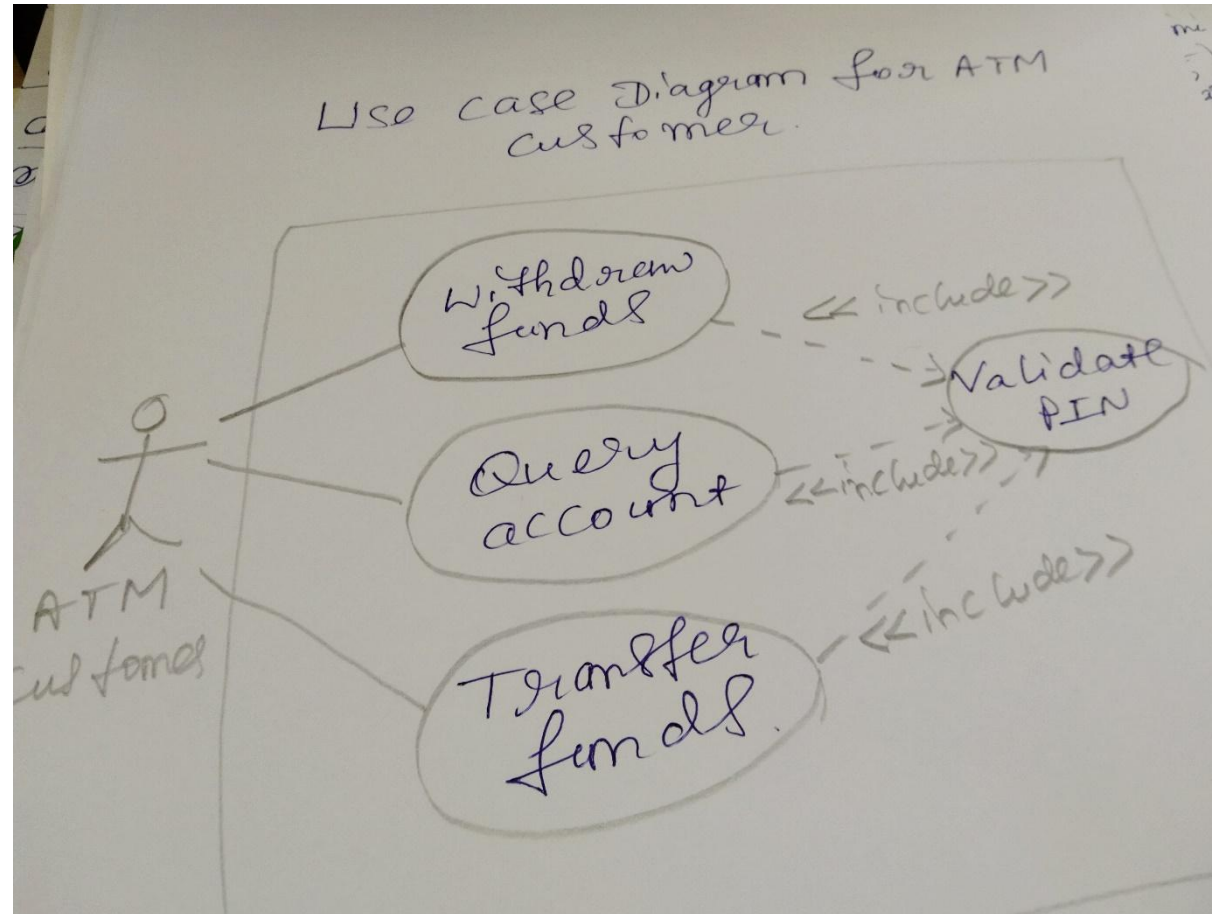 Use case Diagram for ATM
customer.
Withdraw
funds
<<include>>
Validate
PIN
Query
account
<<include>>
ATM
customer
Transfer
funds.
<<include>>